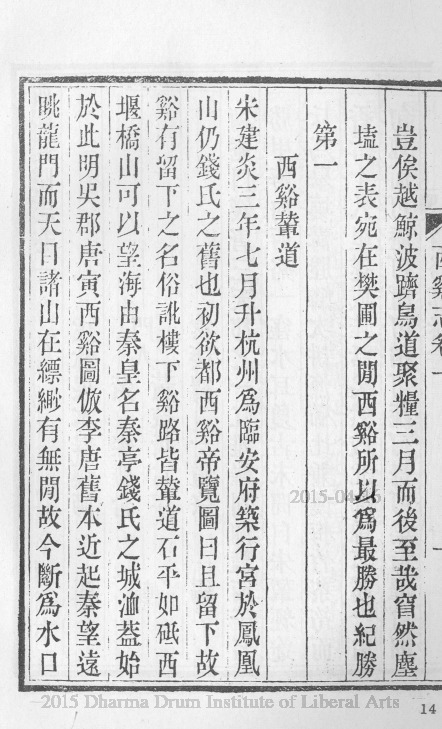 豈俟越鯨波躋鳥道聚糧三月而後至哉窅然塵
壒之表宛在樊圃之閒西谿所以爲最勝也紀勝
第一
西谿輦道
宋建炎三年七月升杭州爲臨安府築行宮於鳳凰
山仍錢氏之舊也初欲都西谿帝覽圖曰且留下故
谿有留下之名俗訛樓下谿路皆輦道石平如砥西
堰橋山可以望海由秦皇名秦亭錢氏之城洫葢始
於此明吳郡唐寅西谿圖倣李唐舊本近起秦望遠
眺龍門而天目諸山在縹緲有無閒故今斷爲水口
2015-04-16
2015 Dharma Drum Institute of Liberal Arts
14